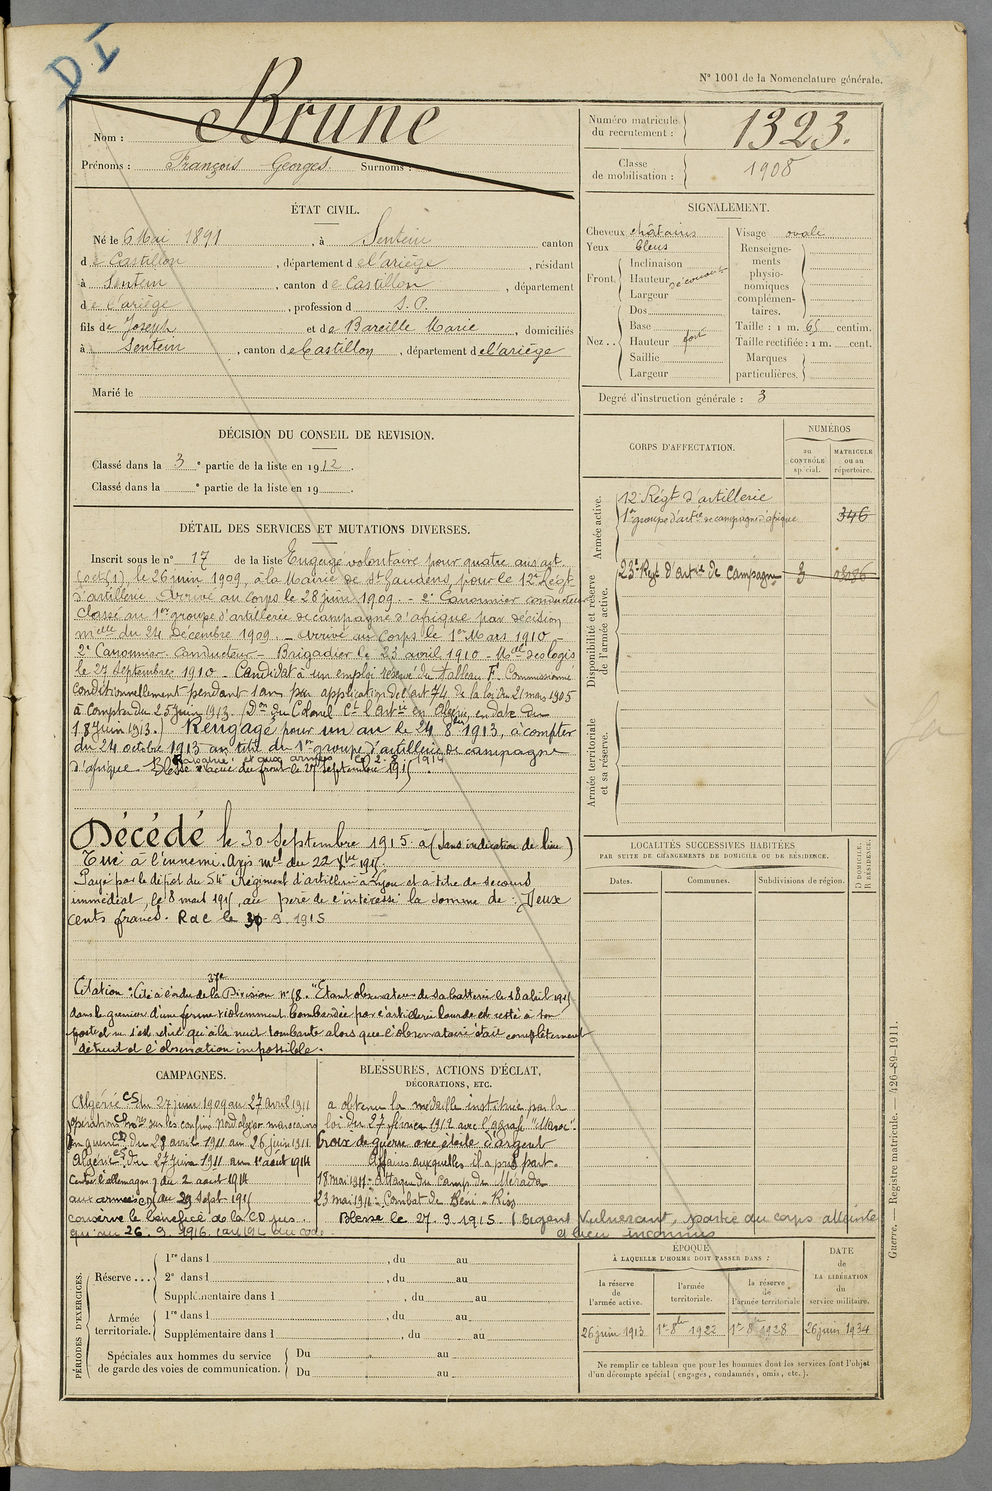 DI
N° 1001 de la Nomenclature générale.
Nom : Brune
Prénoms : François Georges. Surnoms :
Numéro matricule du recrutement : 1323.
Classe de mobilisation : 1908
ÉTAT CIVIL.
Né le 6 Mai 1891, à Sentein canton
de Castillon, département de l'ariège, résidant
à Sentein, canton de Castillon, département
de l'ariège, profession d S. P.
fils de Joseph et de Bareille Marie, domiciliés
à Sentein, canton de Castillon, département de l'ariège
Marié le
SIGNALEMENT.
Cheveux châtains
Yeux bleus
Front. Inclinaison
Hauteur découvert
Largeur
Nez.. Dos
Base
Hauteur fort
Saillie
Largeur
Visage ovale
Renseignements physionomiques complémentaires.
Taille : 1 m. 65 centim.
Taille rectifiée : 1 m. cent.
Marques particulières.
Degré d'instruction générale : 3
DÉCISION DU CONSEIL DE REVISION.
Classé dans la 3e partie de la liste en 1912.
Classé dans la e partie de la liste en 19 .
CORPS D'AFFECTATION.
NUMÉROS
au CONTRÔLE spécial.
MATRICULE ou au répertoire.
Armée active.
12e Régt d'artillerie
1er groupe d'artie de campagne d'afrique 346
Disponibilité et réserve de l'armée active.
23e Régt d'artie de Campagne 3
Armée territoriale et sa réserve.
DÉTAIL DES SERVICES ET MUTATIONS DIVERSES.
Inscrit sous le n° 17 de la liste Engagé volontaire pour quatre ans
le 26 juin 1909, à la Mairie de St Gaudens, pour le 12e Régt
d'artillerie Arrivé au corps le 28 juin 1909. - 2e Canonnier conducteur
Classé au 1er groupe d'artillerie de campagne d'afrique par décision
melle du 24 Décembre 1909. - arrivé au Corps le 1er Mars 1910 -
2e Canonnier Conducteur - Brigadier le 23 avril 1910 - Mal des logis
le 27 septembre 1910 - Candidat à un emploi réservé du tableau F. Commissionné
conditionnellement pendant 1 an par application de l'art 74 de la loi du 21 mars 1905
à compter du 25 juin 1913. (Don du Colonel Ct l'Artie en Algérie, en date du
18 juin 1913.) Rengagé pour un an le 24 8bre 1913, à compter
du 24 octobre 1913 au titre du 1er groupe d'artillerie de campagne
d'afrique. aux armées 2.8.1914
Blessé évacué du front le 27 septembre 1915.
Décédé le 30 Septembre 1915 à (sans indication de lieu)
Tué à l'ennemi. Avis mel du 22 Xbre 1915.
Payé par le dépôt du 54e Régiment d'artillerie à Lyon et à titre de secours
immédiat, le 8 mars 1915, au père de l'intéressé la somme de : Deux
cents francs. R d c le 30 9 1915
Citation : Cité à l'ordre de la 37e Division n° 18. "Etant observateur de sa batterie le 18 avril 1915
dans le grenier d'une ferme violemment bombardée par l'artillerie lourde est resté à son
poste et ne s'est retiré qu'à la nuit tombante alors que l'observatoire était complètement
détruit et l'observation impossible.
LOCALITÉS SUCCESSIVES HABITÉES
PAR SUITE DE CHANGEMENTS DE DOMICILE OU DE RÉSIDENCE.
Dates.
Communes.
Subdivisions de région.
D DOMICILE.
R RÉSIDENCE.
CAMPAGNES.
Algérie CS du 27 juin 1909 au 27 avril 1911
opérations sur les confins Nord algéro marocains
en guerre CD du 28 avril 1911 au 26 juin 1911
Algérie CS du 27 juin 1911 au 1er août 1914
Contre l'allemagne du 2 août 1914
aux armées CD au 29 sept. 1915
conserve le bénéfice de la CD jus.
qu'au 26. 9. 1916
BLESSURES, ACTIONS D'ÉCLAT,
DÉCORATIONS, ETC.
a obtenu la médaille instituée par la
loi du 27 février 1912 avec l'agrafe "Maroc".
Croix de guerre avec étoile d'argent
Affaires auxquelles il a pris part.
18 mai 1911 : Attaque du Camp de Mérada
23 mai 1911 : Combat de Béni - Riss
Blessé le 27. 9. 1915. (Argent vulnérant, partie du corps atteinte
et lieu inconnus
PÉRIODES D'EXERCICES.
Réserve... 1re dans l , du au
2e dans l , du au
Supplémentaire dans l , du au
Armée territoriale. 1re dans l , du au
Supplémentaire dans l , du au
Spéciales aux hommes du service de garde des voies de communication. Du au
Du au
ÉPOQUE
À LAQUELLE L'HOMME DOIT PASSER DANS :
la réserve de l'armée active.
l'armée territoriale.
la réserve de l'armée territoriale
DATE de LA LIBÉRATION du service militaire.
26 juin 1913
1er 8bre 1922
1er 8bre 1928
26 juin 1934
Ne remplir ce tableau que pour les hommes dont les services font l'objet
d'un décompte spécial (engagés, condamnés, omis, etc.).
Guerre. — Registre matricule. — 426-89-1911.